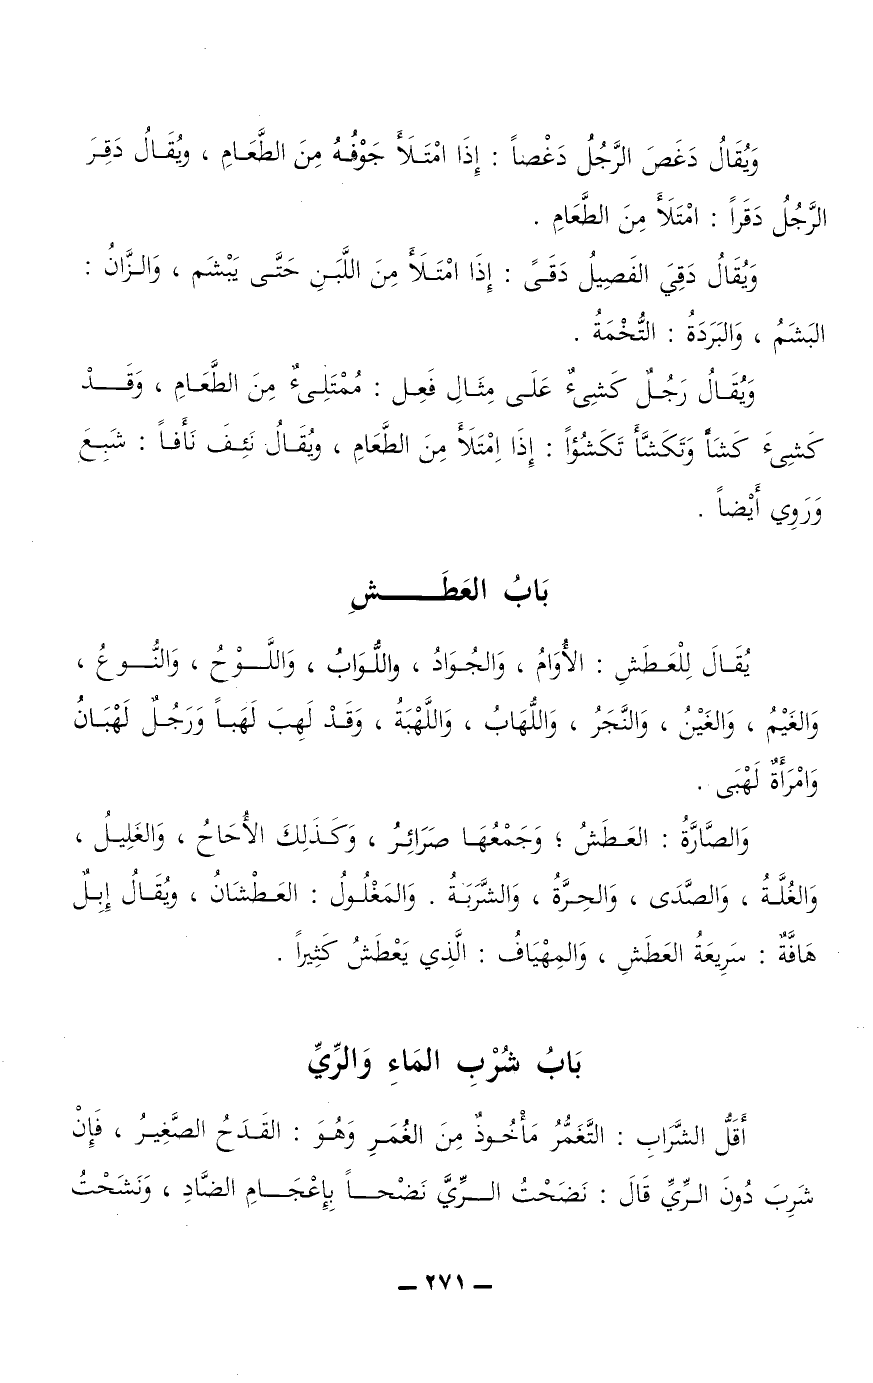 وَيُقَالُ دَغَصَ الرَّجُلُ دَغْصاً : إِذَا امْتَلَأَ جَوْفُهُ مِنَ الطَّعَامِ ، ويُقَالُ دَقِرَ
الرَّجُلُ دَقَراً : امْتَلَأَ مِنَ الطَّعَامِ .
وَيُقَالُ دَقِيَ الفَصِيلُ دَقىً : إِذَا امْتَلَأَ مِنَ اللَّبَنِ حَتَّى يَبْشَم ، وَالزَّانُ :
البَشَمُ ، وَالبَرَدَةُ : التُّخْمَةُ .
وَيُقَالُ رَجُلٌ كَشِىءٌ عَلَى مِثَالِ فَعِل : مُمْتَلِىءٌ مِنَ الطَّعَامِ ، وَقَدْ
كَشِىءَ كَشَأً وَتَكَشَّأَ تَكَشُؤاً : إِذَا اِمْتَلَأَ مِنَ الطَّعَامِ ، ويُقَالُ نَئِفَ نَأَفاً : شَبِعَ
وَرَوِي أَيْضاً .
بَابُ العَطَشِ
يُقَالَ لِلْعَطَشِ : الأُوَامُ ، وَالجُوَادُ ، واللُّوَابُ ، وَاللَّوْحُ ، وَالنُّوعُ ،
وَالغَيْمُ ، وَالغَيْنُ ، وَالنَّجَرُ ، وَاللُّهَابُ ، وَاللَّهْبَةُ ، وَقَدْ لَهِبَ لَهَباً وَرَجُلٌ لَهْبَانُ
وَامْرَأَةٌ لَهْبَى .
وَالصَّارَّةُ : العَطَشُ ؛ وَجَمْعُهَا صَرَائِرُ ، وَكَذَلِكَ الأُحَاحُ ، وَالغَلِيلُ ،
وَالغُلَّةُ ، وَالصَّدَى ، وَالحِرَّةُ ، وَالشَّرَبَةُ . وَالمَغْلُولُ : العَطْشَانُ ، ويُقَالُ إِبِلٌ
هَافَّةٌ : سَرِيعَةُ العَطَشِ ، وَالمِهْيَافُ : الَّذِي يَعْطَشُ كَثِيراً .
بَابُ شُرْبِ المَاءِ وَالرِّيِّ
أَقَلُّ الشَّرَابِ : التَّغَمُّرُ مَأْخُوذٌ مِنَ الغُمَرِ وَهُوَ : القَدَحُ الصَّغِيرُ ، فَإِنْ
شَرِبَ دُونَ الرِّيِّ قَالَ : نَضَحْتُ الرِّيَّ نَضْحاً بِإِعْجَامِ الضَّادِ ، وَنَشَحْتُ
ــ ٢٧١ ــ